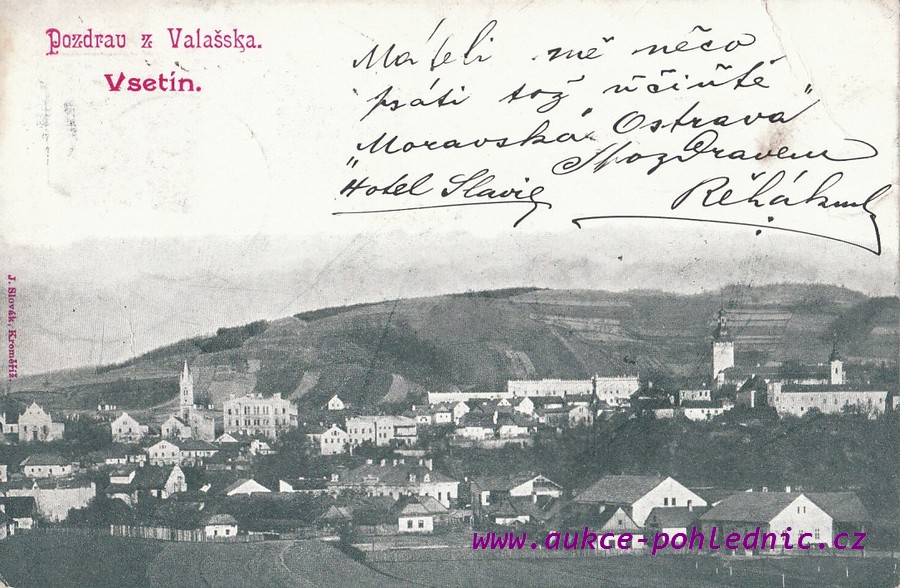 Pozdrav z Valašska.
Vsetín.
Máteli mě něco
psáti tož učiňtě
"Moravská Ostrava"
"Hotel Slavie
S pozdravem
Řehák
J. Slovák, Kroměříž.
www.aukce-pohlednic.cz